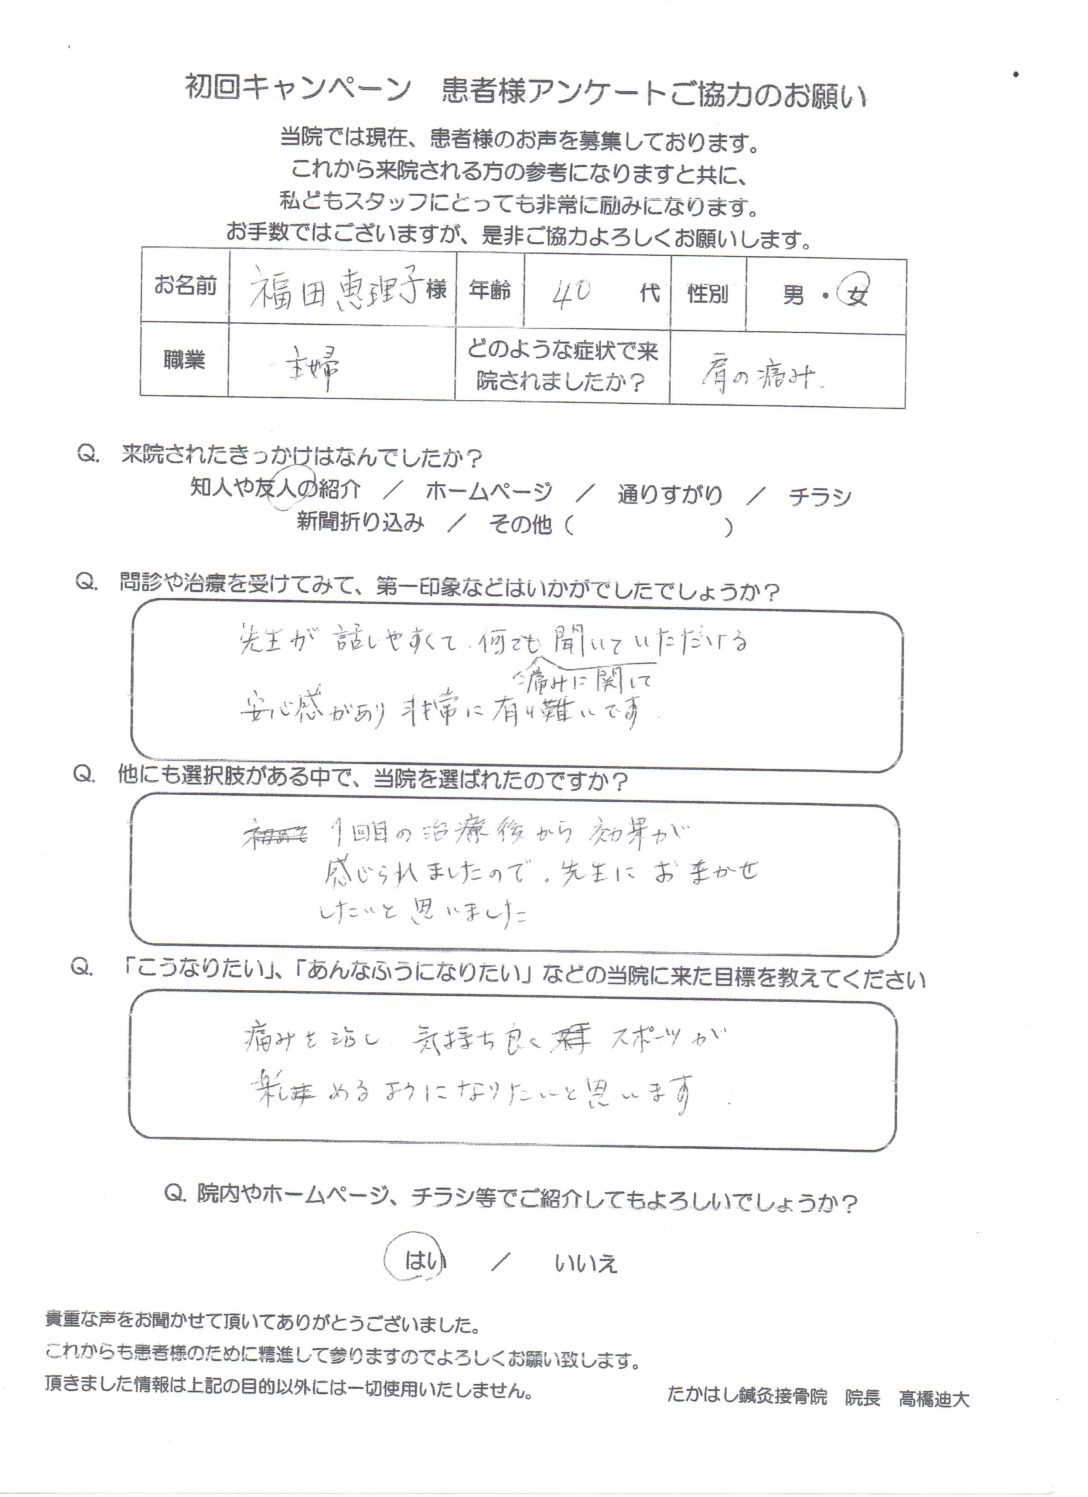 初回キャンペーン　患者様アンケートご協力のお願い
当院では現在、患者様のお声を募集しております。
これから来院される方の参考になりますと共に、
私どもスタッフにとっても非常に励みになります。
お手数ではございますが、是非ご協力よろしくお願いします。
お名前 福田恵理子様 年齢 40 代 性別 男・女
職業 主婦 どのような症状で来院されましたか? 肩の痛み.
Q. 来院されたきっかけはなんでしたか?
知人や友人の紹介 / ホームページ / 通りすがり / チラシ
新聞折り込み / その他( )
Q. 問診や治療を受けてみて、第一印象などはいかがでしたでしょうか?
先生が話しやすくて、何でも聞いていただける
痛みに関して
安心感があり非常に有り難いです.
Q. 他にも選択肢がある中で、当院を選ばれたのですか?
1回目の治療後から効果が
感じられましたので、先生におまかせ
したいと思いました
Q. 「こうなりたい」、「あんなふうになりたい」などの当院に来た目標を教えてください
痛みを治し、気持ち良く スポーツが
楽しめるようになりたいと思います.
Q. 院内やホームページ、チラシ等でご紹介してもよろしいでしょうか?
はい / いいえ
貴重な声をお聞かせて頂いてありがとうございました。
これからも患者様のために精進して参りますのでよろしくお願い致します。
頂きました情報は上記の目的以外には一切使用いたしません。
たかはし鍼灸接骨院　院長　髙橋迪大